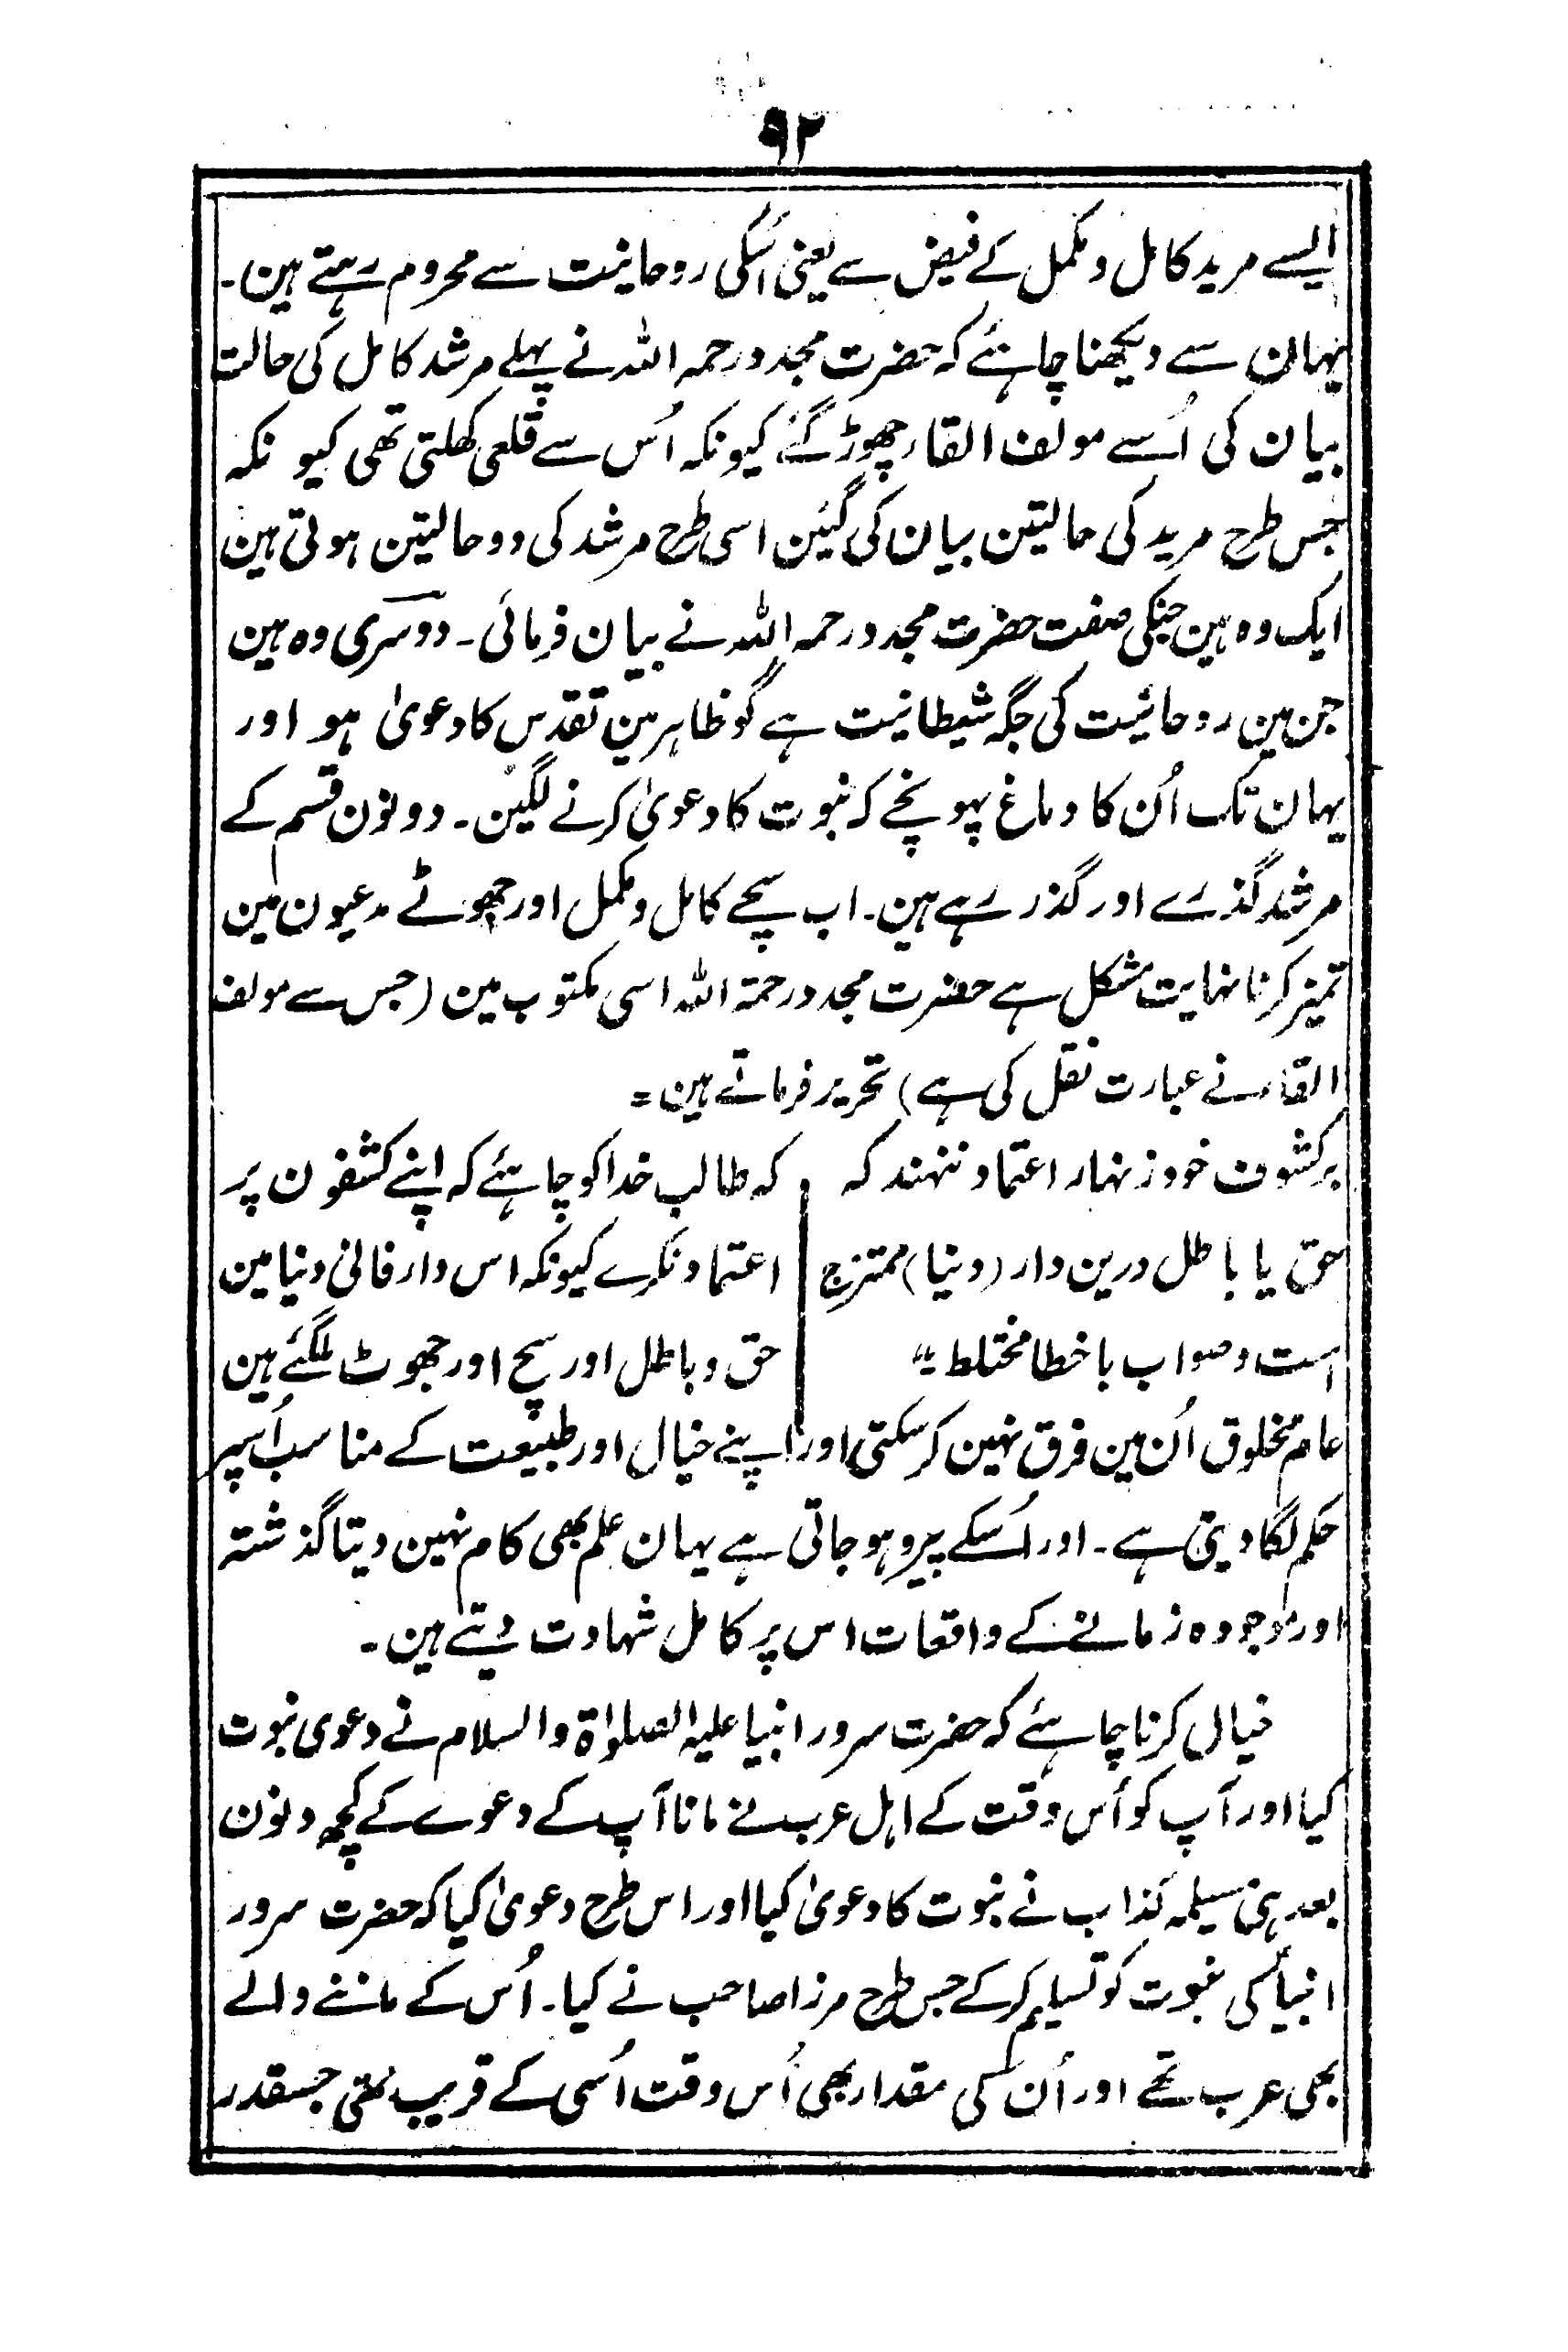 ۹۲
ایسے مرید کامل و مکمل کے فیض سے یعنی اُسکی روحانیت سے محروم رہتے ہین۔
یہان سے دیکھنا چاہئے کہ حضرت مجدد رحمہ اللہ نے پہلے مرشد کامل کی حالت
بیان کی اُسے مولف القاء چھوڑ گئے کیونکہ اُس سے قلعی کھلتی تھی کیو نکہ
جس طرح مرید کی حالتین بیان کی گئین اسی طرح مرشد کی دو حالتین ہوتی ہین
ایک وہ ہین جنکی صفت حضرت مجدد رحمہ اللہ نے بیان فرمائی۔ دوسری وہ ہین
جن مین روحانیت کی جگہ شیطانیت ہے گو ظاہر مین تقدس کا دعویٰ ہو اور
یہان تک اُن کا دماغ پہونچے کہ نبوت کا دعویٰ کرنے لگین۔ دونون قسم کے
مرشد گذرے اور گذر رہے ہین۔ اب سچے کامل و مکمل اور جھوٹے مدعیون مین
تمیز کرنا نہایت مشکل ہے حضرت مجدد رحمۃ اللہ اسی مکتوب مین (جس سے مولف
القاء نے عبارت نقل کی ہے) تحریر فرماتے ہین =
بر کشوف خود زنہار اعتماد ننہند کہ
حق یا باطل درین دار (دنیا) ممتزج
است و صواب با خطا مختلط "
کہ طالب خدا کو چاہئے کہ اپنے کشفون پر
اعتماد نکرے کیونکہ اس دار فانی دنیا مین
حق و باطل اور سچ اور جھوٹ ملگئے ہین
عام مخلوق اُن مین فرق نہین کر سکتی اور اپنے خیال اور طبیعت کے مناسب اُسپر
حکم لگا دیتی ہے۔ اور اُسکے پیرو ہو جاتی ہے یہان علم بھی کام نہین دیتا گذشتہ
اور موجودہ زمانے کے واقعات اس پر کامل شہادت دیتے ہین۔
خیال کرنا چاہئے کہ حضرت سرور انبیا علیہ الصلواۃ والسلام نے دعوی نبوت
کیا اور آپ کو اُس وقت کے اہل عرب نے مانا آپ کے دعوے کے کچھ دنون
بعد ہی مسیلمہ کذاب نے نبوت کا دعویٰ کیا اور اس طرح دعویٰ کیا کہ حضرت سرور
انبیاؑ کی نبوت کو تسلیم کرکے جس طرح مرزا صاحب نے کیا۔ اُس کے ماننے والے
بھی عرب تھے اور اُن کی مقدار بھی اُس وقت اُسی کے قریب تھی جسقدر